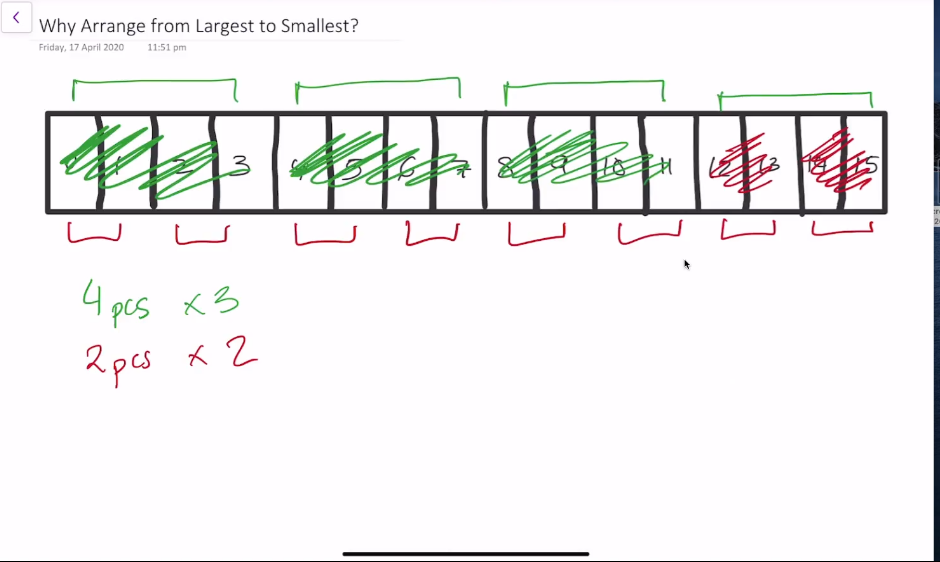 Why Arrange from Largest to Smallest?
Friday, 17 April 2020 11:51 pm
1 2 3 4 5 6 7 8 9 10 11 12 13 14 15
4pcs x 3
2pcs x 2